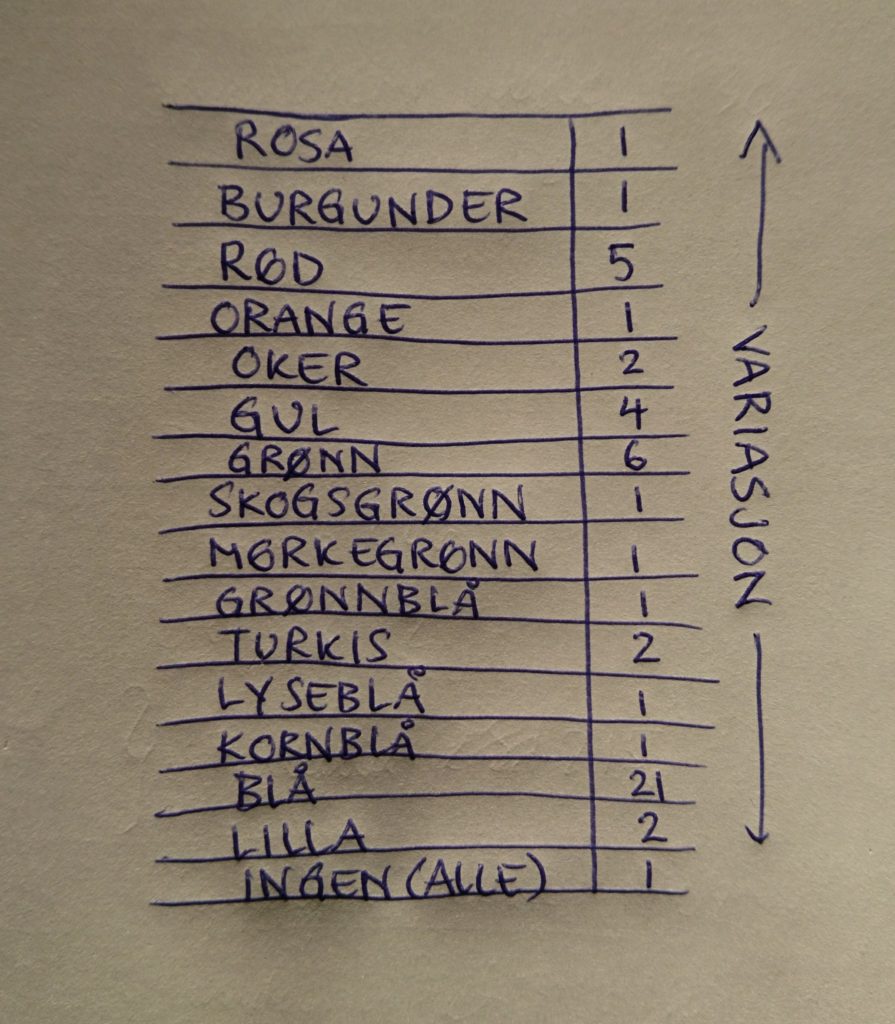 ROSA 1
BURGUNDER 1
RØD 5
ORANGE 1
OKER 2
GUL 4
GRØNN 6
SKOGSGRØNN 1
MØRKEGRØNN 1
GRØNNBLÅ 1
TURKIS 2
LYSEBLÅ 1
KORNBLÅ 1
BLÅ 21
LILLA 2
INGEN (ALLE) 1
VARIASJON